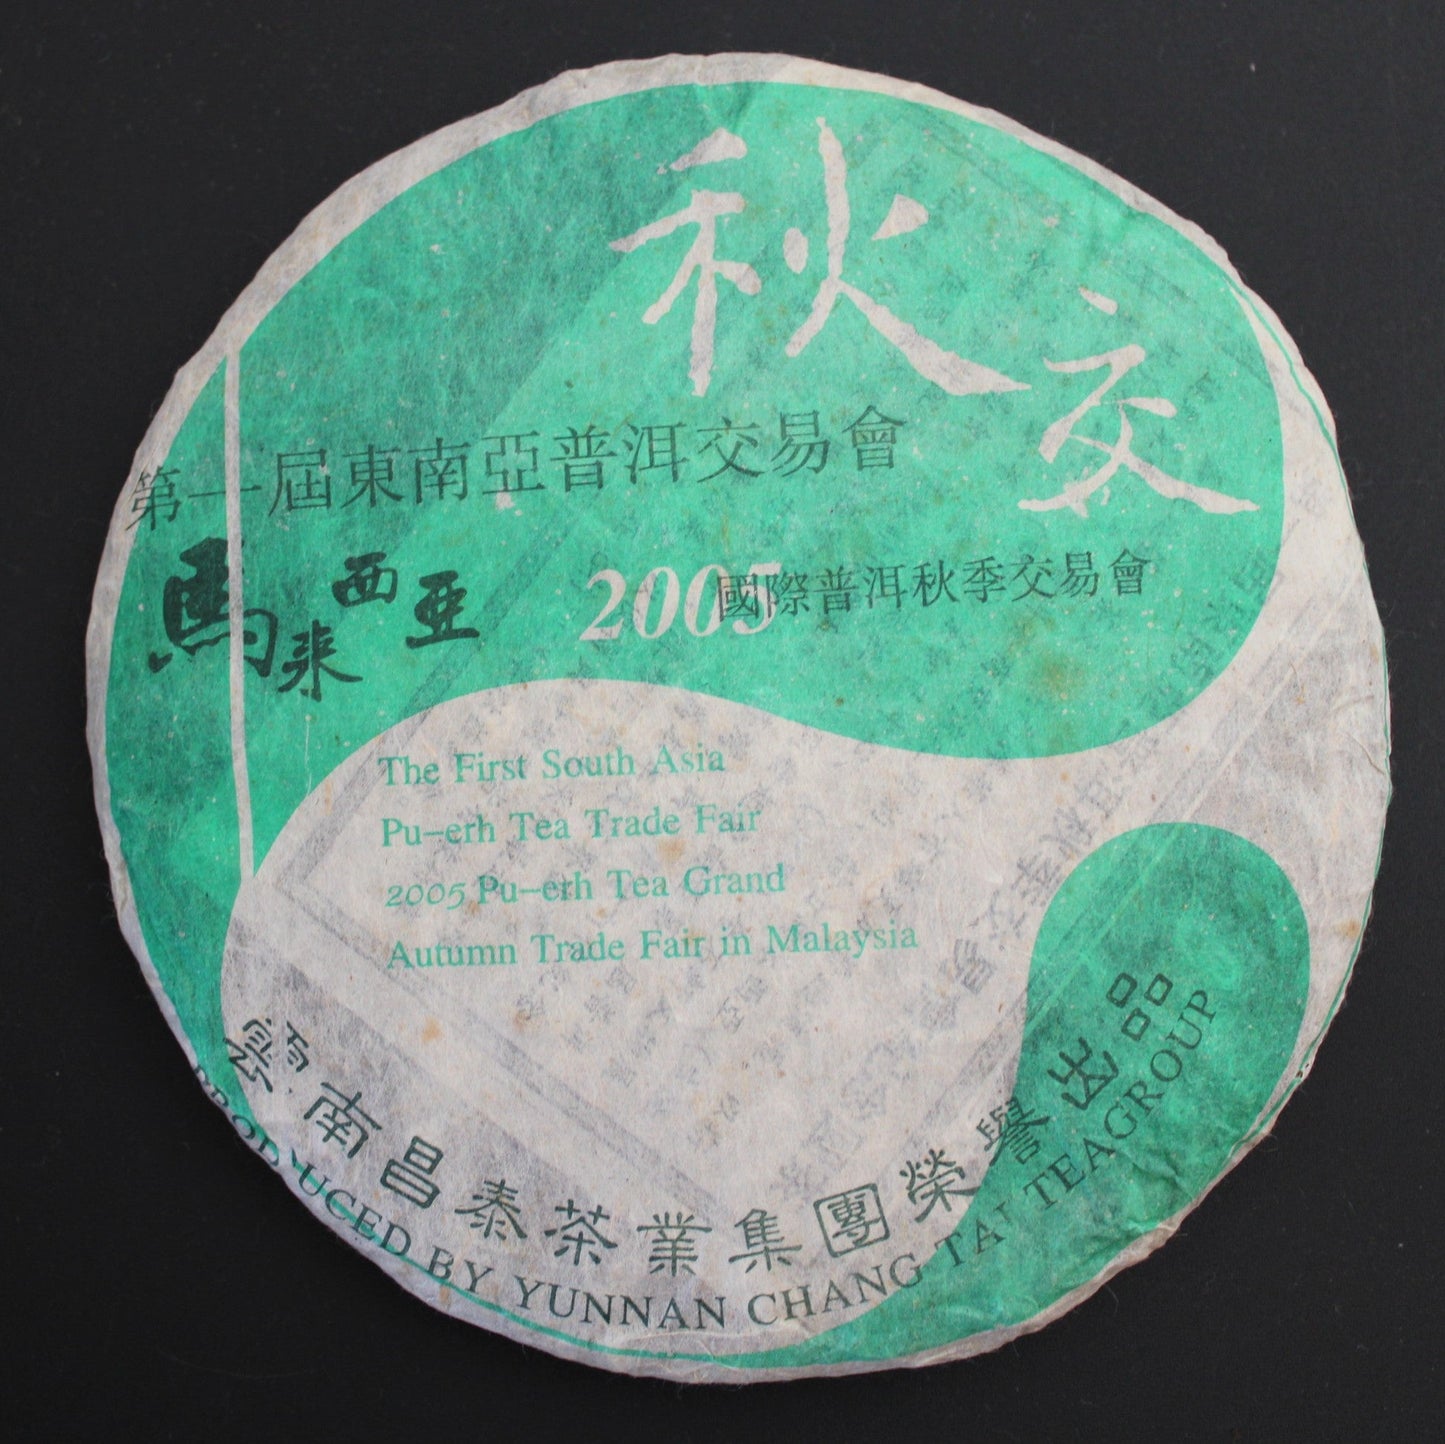 秋交
第一屆東南亞普洱交易會
馬來西亞
2005國際普洱秋季交易會
The First South Asia
Pu-erh Tea Trade Fair
2005 Pu-erh Tea Grand
Autumn Trade Fair in Malaysia
雲南昌泰茶業集團榮譽出品
PRODUCED BY YUNNAN CHANG TAI TEAGROUP